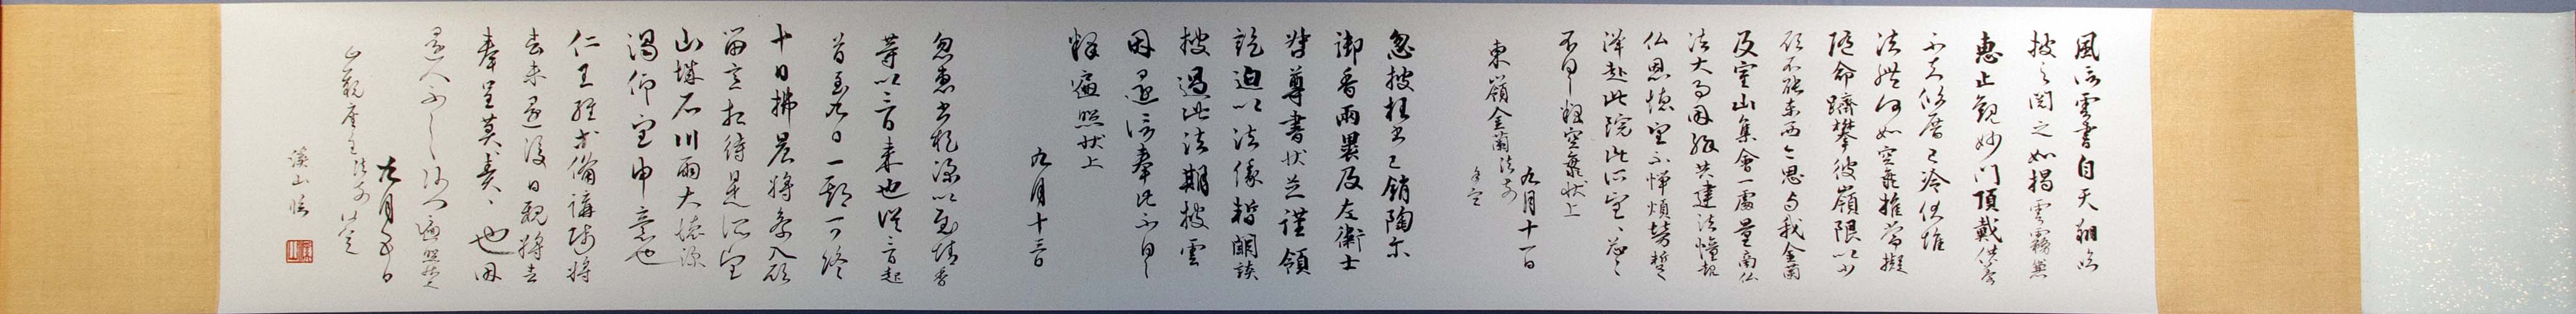 風信雲書自天翔臨
披之閲之如揭雲霧兼
恵止観妙門頂戴供養
不知攸厝已冷伏惟
法體何如空海推常擬
隨命躋攀彼嶺限以少
願不能東西今思与我金蘭
及室山集會一處量商仏
法大事因縁共建法幢報
仏恩徳望不憚煩勞蹔
降赴此院此所望々忩々
不具釋空海状上
九月十一日
東嶺金蘭法前
謹空
忽披枉書已銷陶尓
御香兩裹及左衛士
督尊書状並謹領
訖迫以法縁暫闕談
披過此法期披雲
因還信奉此不具
釋遍照状上
九月十三日
忽惠書札深以慰情香
等以三日来也従三日起
首至九日一期可終
十日拂晨將参入願
留意相待是所望
山城石川兩大德深
渴仰望申意也
仁王經等備講師將
去未還後日親將去
奉呈莫責々也因
還人不具沙門遍照状上
九月五日
止観座主法前謹空
溪山臨